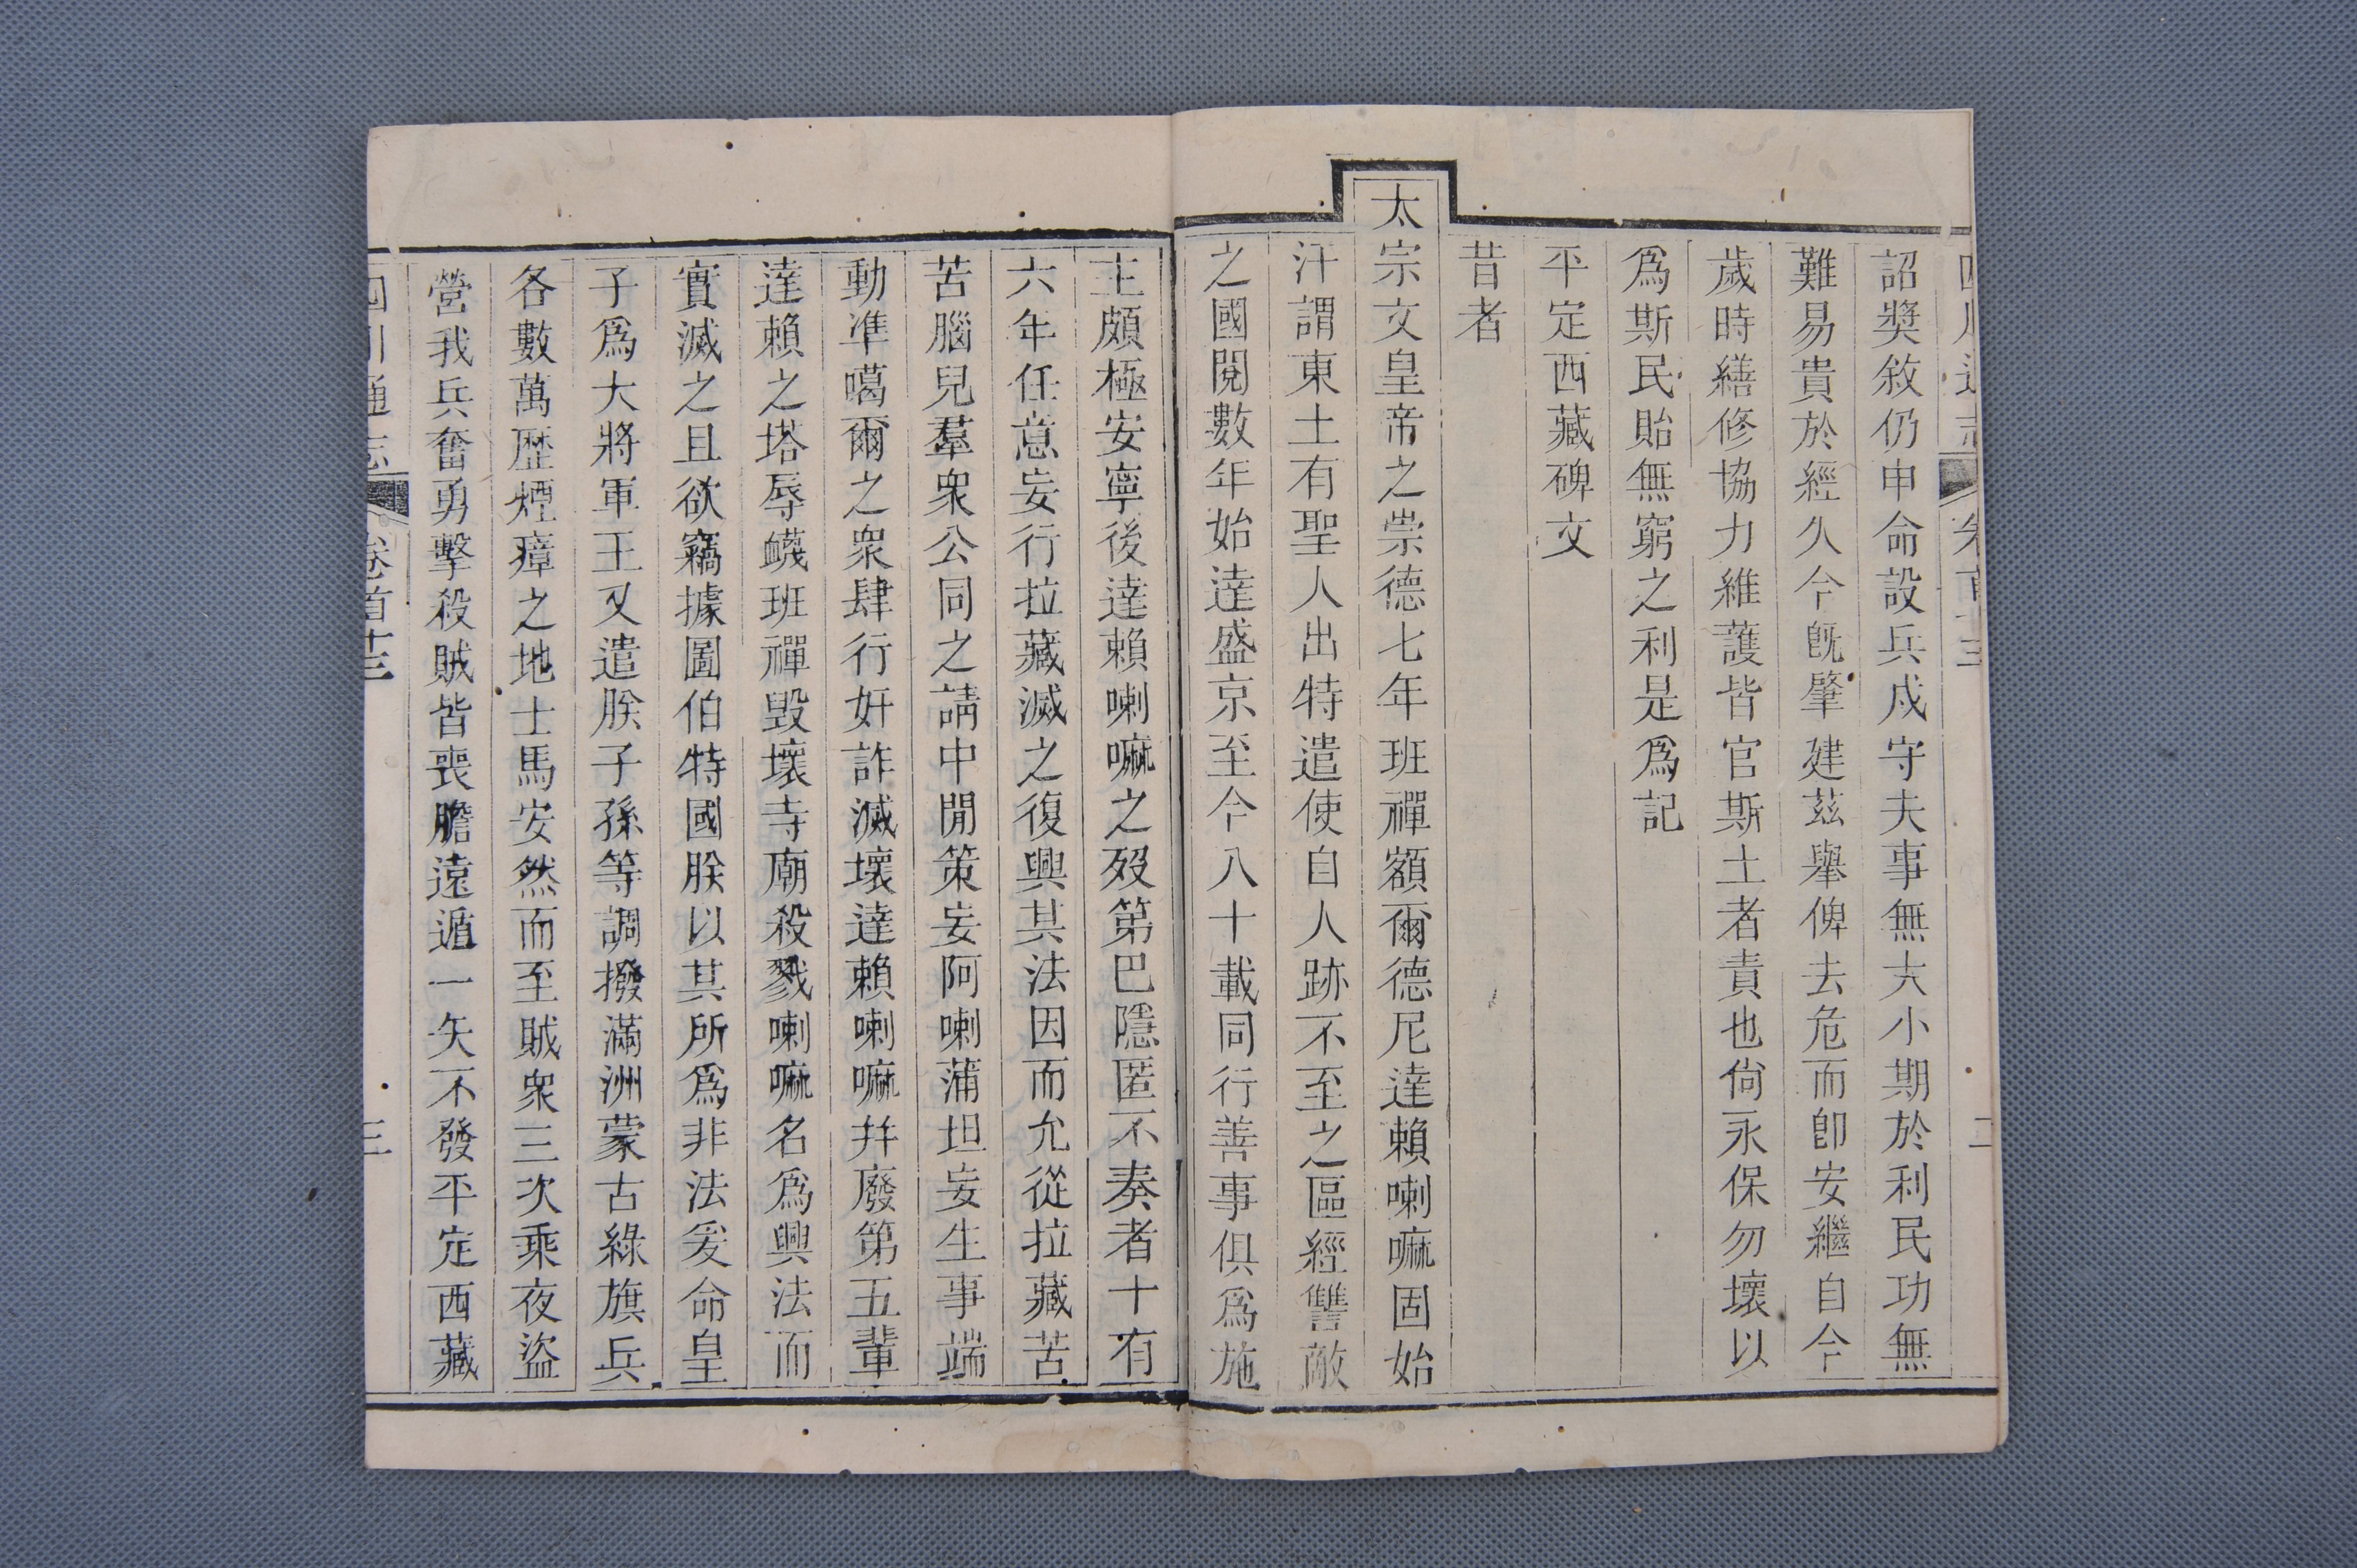 詔獎敘仍申命設兵戍守夫事無大小期於利民功無
難易貴於經久今旣肇建茲舉俾去危而卽安繼自今
歲時繕修協力維護皆官斯土者責也尙永保勿壞以
爲斯民貽無窮之利是爲記
平定西藏碑文
昔者
太宗文皇帝之崇德七年班禪額爾德尼達賴喇嘛固始
汗謂東土有聖人出特遣使自人跡不至之區經讐敵
之國閱數年始達盛京至今八十載同行善事俱爲施
主頗極安寧後達賴喇嘛之歿第巴隱匿不奏者十有
六年任意妄行拉藏滅之復興其法因而允從拉藏苦
苦腦兒羣衆公同之請中閒策妄阿喇蒲坦妄生事端
動準噶爾之衆肆行奸詐滅壞達賴喇嘛幷廢第五輩
達賴之塔辱衊班禪毀壞寺廟殺戮喇嘛名爲興法而
實滅之且欲竊據圖伯特國朕以其所爲非法爰命皇
子爲大將軍王又遣朕子孫等調撥滿洲蒙古綠旗兵
各數萬歷煙瘴之地士馬安然而至賊衆三次乘夜盜
營我兵奮勇擊殺賊皆喪膽遠遁一矢不發平定西藏
四川通志
卷首十三
三